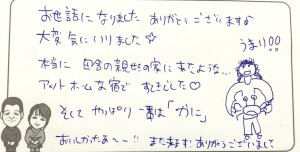 お世話になりました ありがとうございます♪
大変気にいりました☆
うまい!!
本当に 田舎の親せきの家にきたような…
アットホームな宿で すてきでした♡
そして やっぱり 一番は「かに」
おいしかったあ〜〜!! また来ます! ありがとうございまして